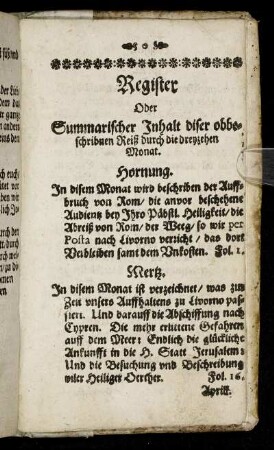 Register
Oder
Summarischer Inhalt diser obbe-
schribnen Reiß durch die dreyzehen
Monat.
Hornung.
In disem Monat wird beschriben der Auff-
bruch von Rom/ die anvor beschehene
Audienz bey Ihro Päbstl. Heiligkeit/ die
Abreiß von Rom/ der Weeg/ so wie per
Posta nach Livorno verricht/ das dort
Verbleiben samt dem Vnkosten. Fol. 1.
Mertz.
In disem Monat ist verzeichnet/ was zur
Zeit vnsers Auffhaltens zu Livorno pas-
siert. Und darauff die Abschiffung nach
Cypren. Die mehr erlittene Gefahren
auf dem Meer: Endlich die glückliche
Ankunfft in die H. Statt Jerusalem:
Und die Besuchung vnd Beschreibung
viler Heiliger Oerther. Fol. 16.
Aprill.